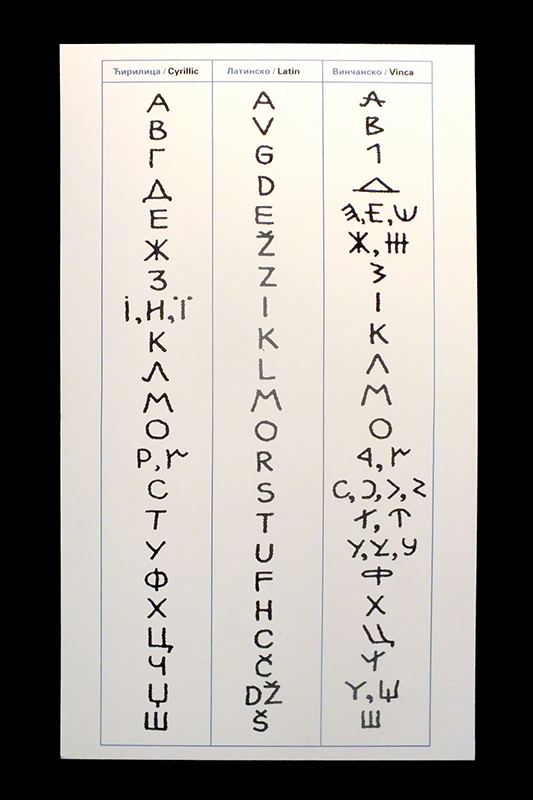 Ћирилица / Cyrillic Латинско / Latin Винчанско / Vinca
А A А
В V В
Г G 1
Д D
Е E Е, Ш
Ж Ž Ж,
З Z З
І, Н, Ї I І
К K К
Л L Λ
М M М
О O О
Р, R
С S С, Ɔ, >,
Т T
У U
Ф F Ф
Х H Х
Ц C Ц
Ч Č
Џ DŽ Y,
Ш Š Ш